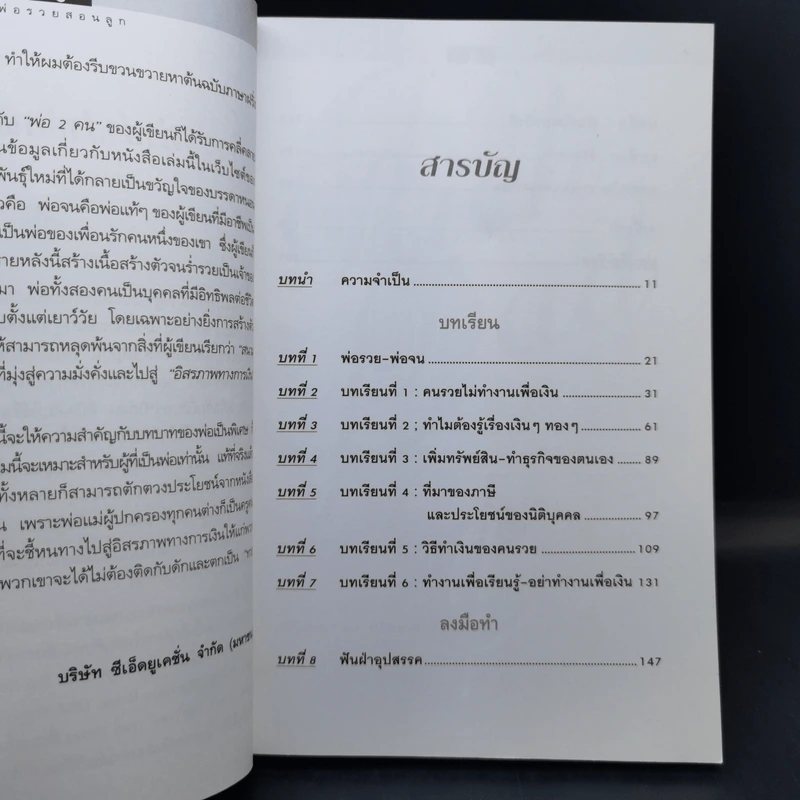 พ่อรวยสอนลูก
ทำให้ผมต้องรีบขวนขวายหาต้นฉบับภาษาอังกฤษ
"พ่อ 2 คน" ของผู้เขียนก็ได้รับการคลี่คลาย
ข้อมูลเกี่ยวกับหนังสือเล่มนี้ในเว็บไซต์ของ
พันธุ์ใหม่ที่ได้กลายเป็นขวัญใจของบรรดาหนอน
คือ พ่อจนคือพ่อแท้ๆ ของผู้เขียนที่มีอาชีพเป็น
เป็นพ่อของเพื่อนรักคนหนึ่งของเขา ซึ่งผู้เขียน
หลังนี้สร้างเนื้อสร้างตัวจนร่ำรวยเป็นเจ้าของ
มา พ่อทั้งสองคนเป็นบุคคลที่มีอิทธิพลต่อชีวิต
ตั้งแต่เยาว์วัย โดยเฉพาะอย่างยิ่งการสร้าง
ให้สามารถหลุดพ้นจากสิ่งที่ผู้เขียนเรียกว่า
ที่มุ่งสู่ความมั่งคั่งและไปสู่ "อิสรภาพทางการเงิน
นี้จะให้ความสำคัญกับบทบาทของพ่อเป็นพิเศษ
นี้จะเหมาะสำหรับผู้ที่เป็นพ่อเท่านั้น แท้ที่จริงแล้ว
ทั้งหลายก็สามารถตักตวงประโยชน์จากหนังสือ
เพราะพ่อแม่ผู้ปกครองทุกคนต่างก็เป็นครู
ที่จะชี้หนทางไปสู่อิสรภาพทางการเงินให้แก่
พวกเขาจะได้ไม่ต้องติดกับดักและตกเป็น
บริษัท ซีเอ็ดยูเคชั่น จำกัด (มหาชน
สารบัญ
บทนำ ความจำเป็น 11
บทเรียน
บทที่ 1 พ่อรวย-พ่อจน 21
บทที่ 2 บทเรียนที่ 1 : คนรวยไม่ทำงานเพื่อเงิน 31
บทที่ 3 บทเรียนที่ 2 ; ทำไมต้องรู้เรื่องเงินๆ ทองๆ 61
บทที่ 4 บทเรียนที่ 3 : เพิ่มทรัพย์สิน-ทำธุรกิจของตนเอง 89
บทที่ 5 บทเรียนที่ 4 : ที่มาของภาษี
และประโยชน์ของนิติบุคคล 97
บทที่ 6 บทเรียนที่ 5 : วิธีทำเงินของคนรวย 109
บทที่ 7 บทเรียนที่ 6 : ทำงานเพื่อเรียนรู้-อย่าทำงานเพื่อเงิน 131
ลงมือทำ
บทที่ 8 ฟันฝ่าอุปสรรค 147